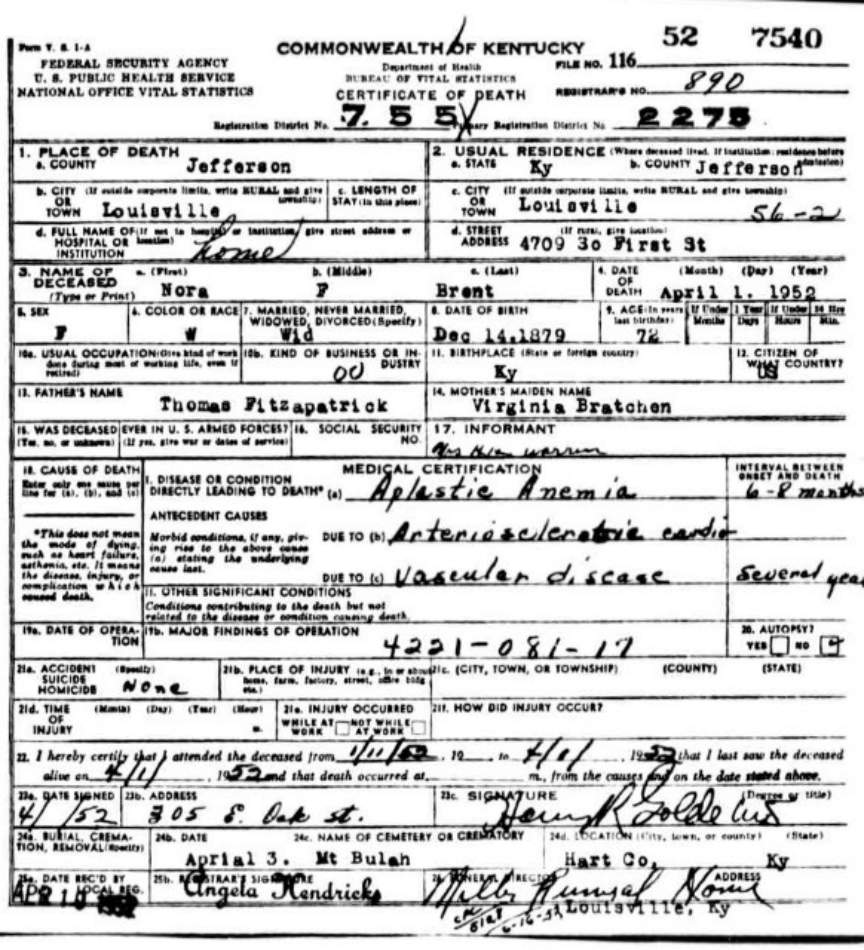 52 7540
Form V. S. 1-A
FEDERAL SECURITY AGENCY
U. S. PUBLIC HEALTH SERVICE
NATIONAL OFFICE VITAL STATISTICS
COMMONWEALTH OF KENTUCKY
Department of Health
BUREAU OF VITAL STATISTICS
CERTIFICATE OF DEATH
FILE NO. 116
REGISTRAR'S NO. 890
Registration District No. 755 Primary Registration District No 2275
1. PLACE OF DEATH
a. COUNTY Jefferson
2. USUAL RESIDENCE (Where deceased lived. If institution: residence before admission)
a. STATE Ky b. COUNTY Jefferson
b. CITY (If outside corporate limits, write RURAL and give township)
OR TOWN Louisville
c. LENGTH OF STAY (in this place)
c. CITY (If outside corporate limits, write RURAL and give township)
OR TOWN Louisville 56-2
d. FULL NAME OF (If not in hospital or institution, give street address or location)
HOSPITAL OR INSTITUTION home
d. STREET ADDRESS (If rural, give location)
4709 So First St
3. NAME OF DECEASED (Type or Print)
a. (First) b. (Middle) c. (Last)
Nora F Brent
4. DATE OF DEATH (Month) (Day) (Year)
April 1. 1952
5. SEX
F
6. COLOR OR RACE
W
7. MARRIED, NEVER MARRIED, WIDOWED, DIVORCED (Specify)
Wid
8. DATE OF BIRTH
Dec 14.1879
9. AGE (In years last birthday)
72
If Under 1 Year Months Days
If Under 24 Hrs Hours Min.
10a. USUAL OCCUPATION (Give kind of work done during most of working life, even if retired)
10b. KIND OF BUSINESS OR INDUSTRY
00
11. BIRTHPLACE (State or foreign country)
Ky
12. CITIZEN OF WHAT COUNTRY?
US
13. FATHER'S NAME
Thomas Fitzapatrick
14. MOTHER'S MAIDEN NAME
Virginia Bratchen
15. WAS DECEASED EVER IN U. S. ARMED FORCES?
(Yes, no, or unknown) (If yes, give war or dates of service)
16. SOCIAL SECURITY NO.
17. INFORMANT
Warren
18. CAUSE OF DEATH
Enter only one cause per line for (a), (b), and (c)
MEDICAL CERTIFICATION
INTERVAL BETWEEN ONSET AND DEATH
I. DISEASE OR CONDITION
DIRECTLY LEADING TO DEATH* (a) Aplastic Anemia 6-8 months
*This does not mean the mode of dying, such as heart failure, asthenia, etc. It means the disease, injury, or complication which caused death.
ANTECEDENT CAUSES
Morbid conditions, if any, giving rise to the above cause (a) stating the underlying cause last.
DUE TO (b) Arteriosclerotic cardio
DUE TO (c) Vascular disease Several year
11. OTHER SIGNIFICANT CONDITIONS
Conditions contributing to the death but not related to the disease or condition causing death.
19a. DATE OF OPERATION
19b. MAJOR FINDINGS OF OPERATION
4221-081-17
20. AUTOPSY?
YES NO
21a. ACCIDENT SUICIDE HOMICIDE (Specify)
None
21b. PLACE OF INJURY (e.g., in or about home, farm, factory, street, office bldg etc.)
21c. (CITY, TOWN, OR TOWNSHIP) (COUNTY) (STATE)
21d. TIME OF INJURY (Month) (Day) (Year) (Hour) m.
21e. INJURY OCCURRED
WHILE AT WORK NOT WHILE AT WORK
21f. HOW DID INJURY OCCUR?
22. I hereby certify that I attended the deceased from 1/11/52, 19 to 4/1/, 1952 that I last saw the deceased
alive on 4/1, 1952 and that death occurred at m., from the causes and on the date stated above.
23a. DATE SIGNED
4/ /52
23b. ADDRESS
305 E. Oak St.
23c. SIGNATURE (Degree or title)
24a. BURIAL, CREMATION, REMOVAL (Specify)
24b. DATE
Aprial 3.
24c. NAME OF CEMETERY OR CREMATORY
Mt Bulah
24d. LOCATION (City, town, or county) (State)
Hart Co, Ky
25a. DATE REC'D BY LOCAL REG.
APR 10 1952
25b. REGISTRAR'S SIGNATURE
Angela Hendricks
26. FUNERAL DIRECTOR ADDRESS
Home
Louisville, Ky
6-16-52